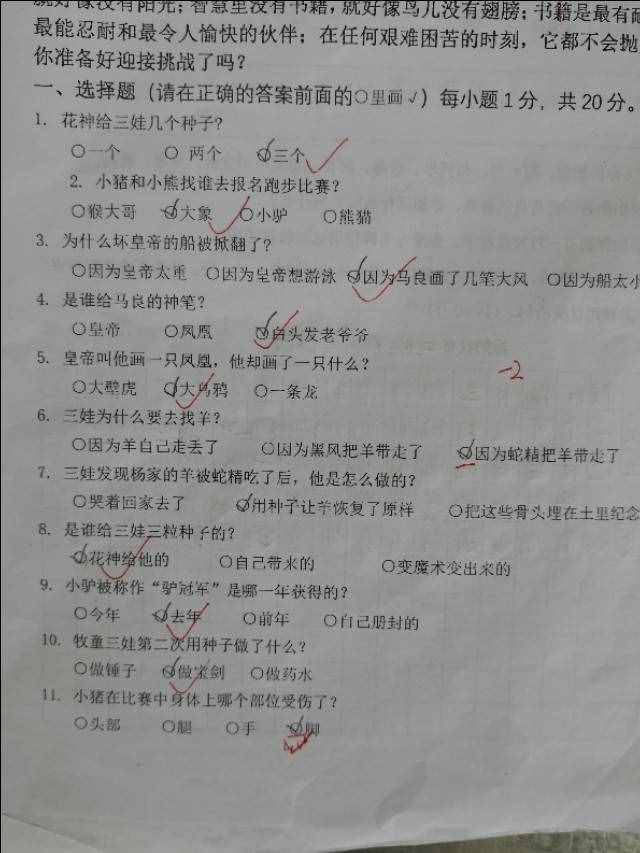 就好像没有阳光；智慧里没有书籍，就好像鸟儿没有翅膀；书籍是最有耐
最能忍耐和最令人愉快的伙伴；在任何艰难困苦的时刻，它都不会抛
你准备好迎接挑战了吗？
一、选择题（请在正确的答案前面的○里画√）每小题1分，共20分。
1. 花神给三娃几个种子？
○一个 ○ 两个 ○三个
2. 小猪和小熊找谁去报名跑步比赛？
○猴大哥 ○大象 ○小驴 ○熊猫
3. 为什么坏皇帝的船被掀翻了？
○因为皇帝太重 ○因为皇帝想游泳 ○因为马良画了几笔大风 ○因为船太小
4. 是谁给马良的神笔？
○皇帝 ○凤凰 ○白头发老爷爷
5. 皇帝叫他画一只凤凰，他却画了一只什么？
-2
○大壁虎 ○大乌鸦 ○一条龙
6. 三娃为什么要去找羊？
○因为羊自己走丢了 ○因为黑风把羊带走了 ○因为蛇精把羊带走了
7. 三娃发现杨家的羊被蛇精吃了后，他是怎么做的？
○哭着回家去了 ○用种子让羊恢复了原样 ○把这些骨头埋在土里纪念
8. 是谁给三娃三粒种子的？
○花神给他的 ○自己带来的 ○变魔术变出来的
9. 小驴被称作“驴冠军”是哪一年获得的？
○今年 ○去年 ○前年 ○自己册封的
10. 牧童三娃第二次用种子做了什么？
○做锤子 ○做宝剑 ○做药水
11. 小猪在比赛中身体上哪个部位受伤了？
○头部 ○腿 ○手 ○脚